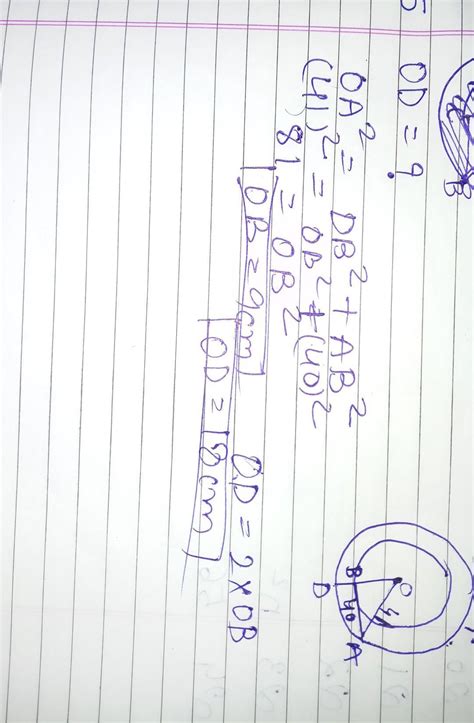 B
OD = ?
OA² = OB² + AB²
(41)² = OB² + (40)²
81 = OB²
OB = 9cm
OD = 2 × OB
OD = 18cm
O
41
B 40
A
D